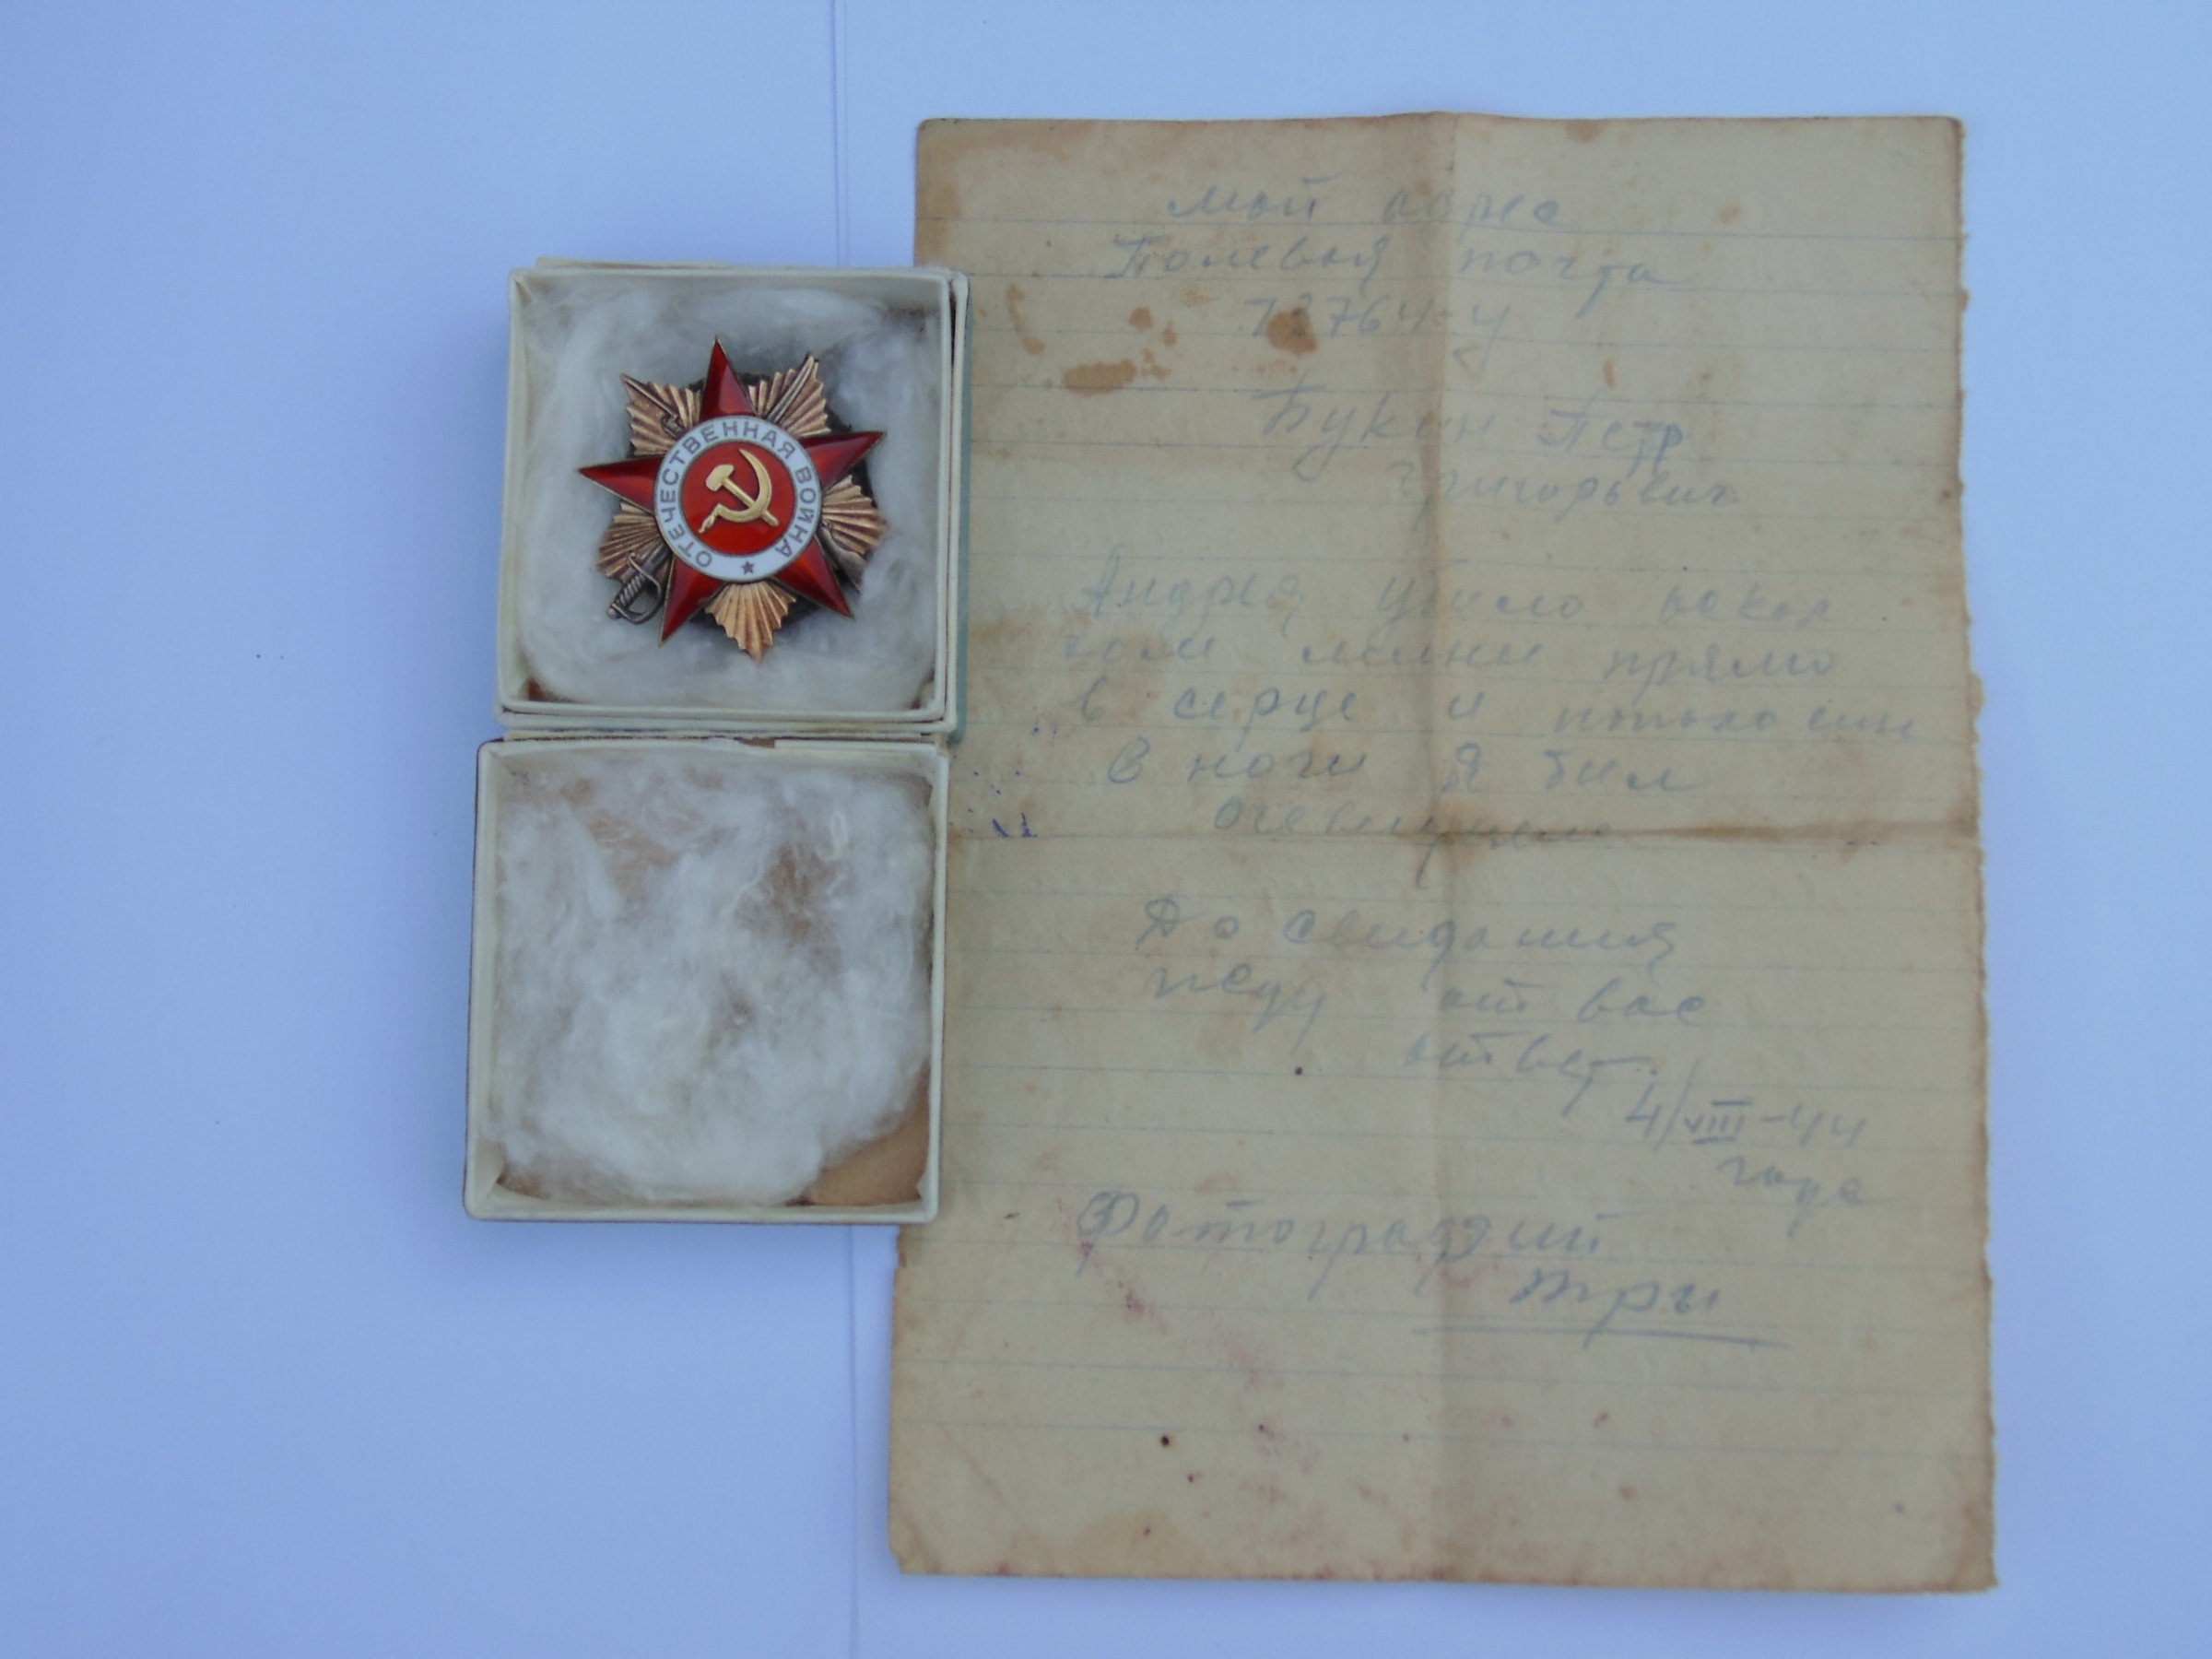 ОТЕЧЕСТВЕННАЯ ВОЙНА
мой адрес
Полевая почта
73764-У
Букин Петр
Григорьевич
Андрея убило оскол
ком мины прямо
в серце и
в ноги я бил
очевидцем
До свидания
жду от вас
ответ.
4/VIII-44
года
Фотографий
три